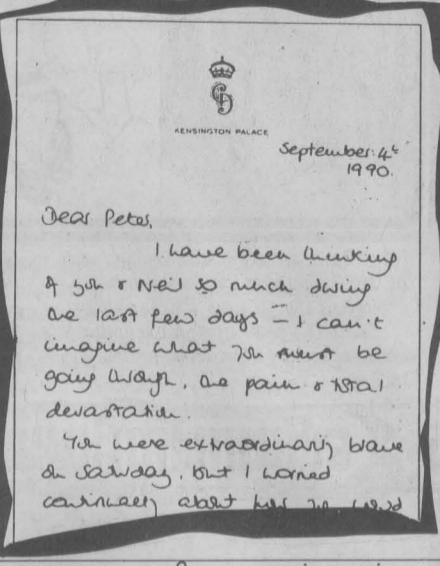 KENSINGTON PALACE
September: 4th
1990.
Dear Peter,
I have been thinking
of you & Neil so much during
the last few days - I can't
imagine what you must be
going through, the pain & total
devastation.
You were extraordinarily brave
on Saturday, but I worried
continually about how you